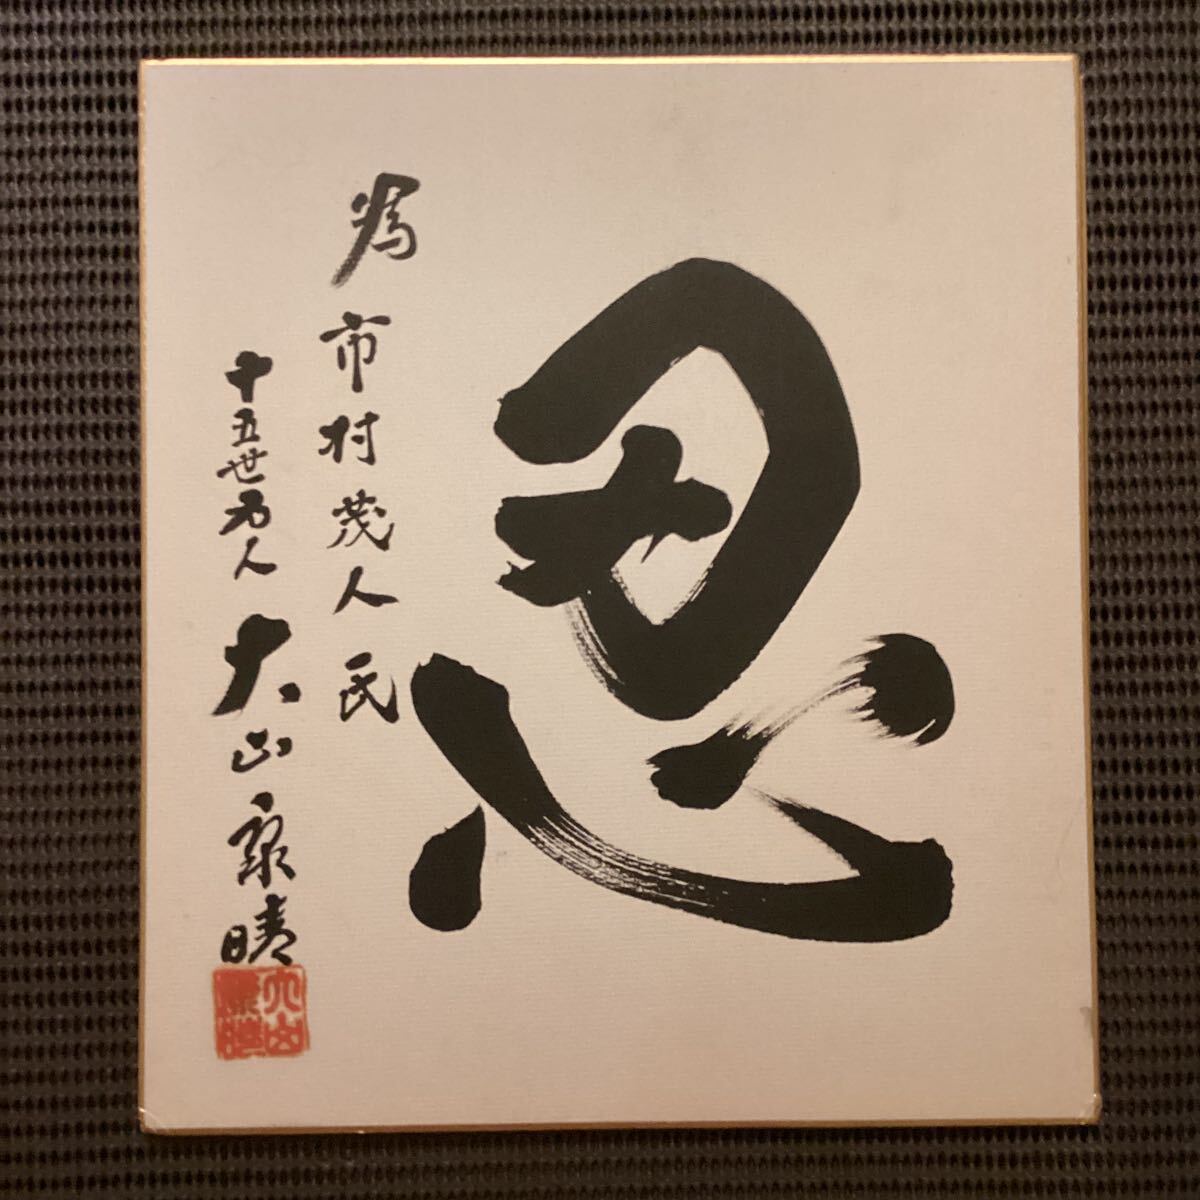 忍
為 市村茂人氏
十五世名人 大山康晴
大山康晴